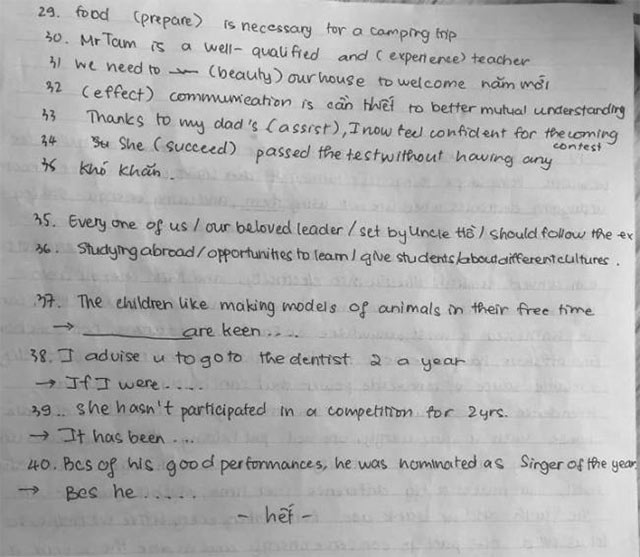 29. food (prepare) is necessary for a camping trip
30. Mr Tam is a well-qualified and (experience) teacher
31 We need to (beauty) our house to welcome năm mới
32 (effect) communication is cần thiết to better mutual understanding
33 Thanks to my dad's (assist), I now feel confident for the coming
contest
34 She (succeed) passed the test without having any
35 Khó khăn.
35. Every one of us / our beloved leader / set by Uncle Hồ / should follow the ex
36. Studying abroad / opportunities to learn / give students / about different cultures.
37. The children like making models of animals in their free time
→ __________ are keen ....
38. I advise u to go to the dentist 2 a year
→ If I were .....
39.. she hasn't participated in a competition for 2yrs.
→ It has been ...
40. Bcs of his good performances, he was nominated as Singer of the year
→ Bcs he .....
- hết -